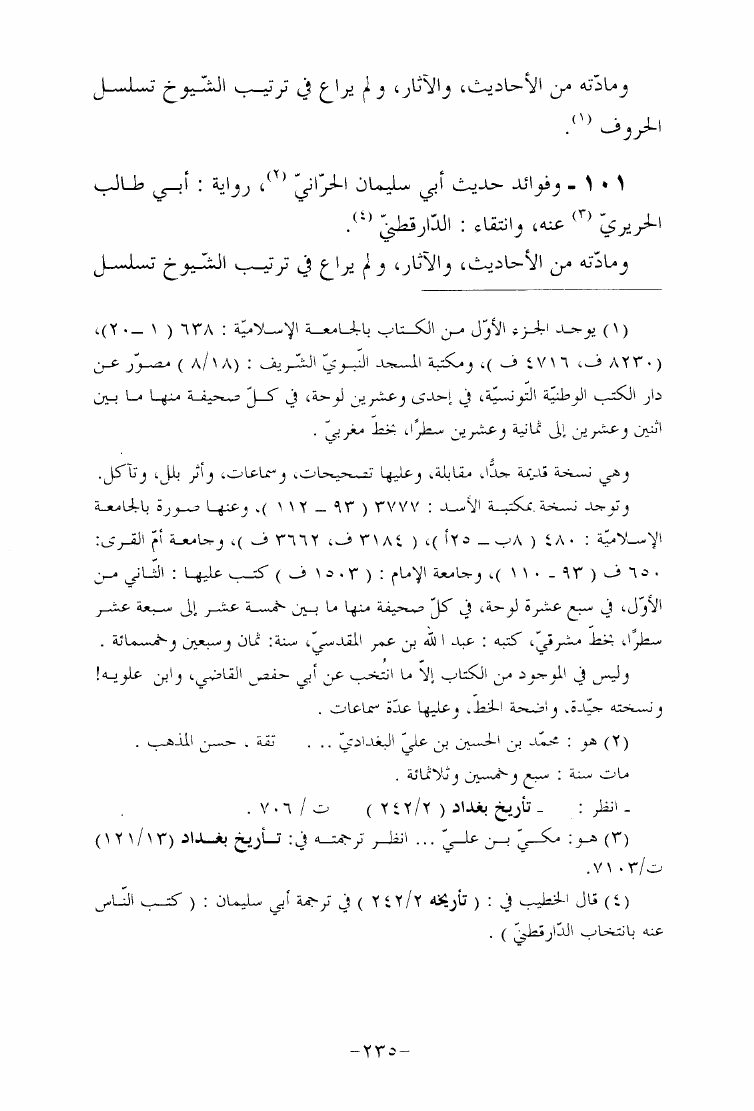 ومادّته من الأحاديث، والآثار، ولم يراع في ترتيب الشّيوخ تسلسل
الحروف (١).
١٠١ - وفوائد حديث أبي سليمان الحرّانيّ (٢)، رواية : أبي طالب
الحريريّ (٣) عنه، وانتقاء : الدّارقطنيّ (٤).
ومادّته من الأحاديث، والآثار، ولم يراع في ترتيب الشّيوخ تسلسل
(١) يوجد الجزء الأوّل من الكتاب بالجامعة الإسلاميّة : ٦٣٨ ( ١ –٢٠)،
(٨٢٣٠ ف، ٤٧١٦ ف )، ومكتبة المسجد النّبويّ الشّريف : (٨/١٨ ) مصوّر عن
دار الكتب الوطنيّة التّونسيّة، في إحدى وعشرين لوحة، في كلّ صحيفة منها ما بين
اثنين وعشرين إلى ثمانية وعشرين سطرًا، بخطّ مغربيّ .
وهي نسخة قديمة جدًّا، مقابلة، وعليها تصحيحات، وسماعات، وأثر بلل، وتآكل.
وتوجد نسخة بمكتبة الأسد : ٣٧٧٧ ( ٩٣ – ١١٢ )، وعنها صورة بالجامعة
الإسلاميّة : ٤٨٠ ( ٨ب – ٢٥أ )، ( ٣١٨٤ ف، ٣٦٦٢ ف )، وجامعة أمّ القرى:
٦٥٠ ف ( ٩٣ - ١١٠ )، وجامعة الإمام : ( ١٥٠٣ ف ) كتب عليها : الثّاني من
الأوّل، في سبع عشرة لوحة، في كلّ صحيفة منها ما بين خمسة عشر إلى سبعة عشر
سطرًا، بخطّ مشرقيّ، كتبه : عبد الله بن عمر المقدسيّ، سنة: ثمان وسبعين وخمسمائة .
وليس في الموجود من الكتاب إلاّ ما انتُخب عن أبي حفص القاضي، وابن علويه!
ونسخته جيّدة، واضحة الخطّ، وعليها عدّة سماعات .
(٢) هو : محمّد بن الحسين بن عليّ البغداديّ ... . ثقة . حسن المذهب .
مات سنة : سبع وخمسين وثلاثمائة .
ـ انظر : ـ تأريخ بغداد ( ٢٤٢/٢ ) ت / ٧٠٦ .
(٣) هو: مكيّ بن عليّ ... انظر ترجمته في: تأريخ بغداد (١٢١/١٣)
ت/٧١٠٣.
(٤) قال الخطيب في : ( تأريخه ٢٤٢/٢ ) في ترجمة أبي سليمان : ( كتب النّاس
عنه بانتخاب الدّارقطنيّ ) .
–٢٣٥–